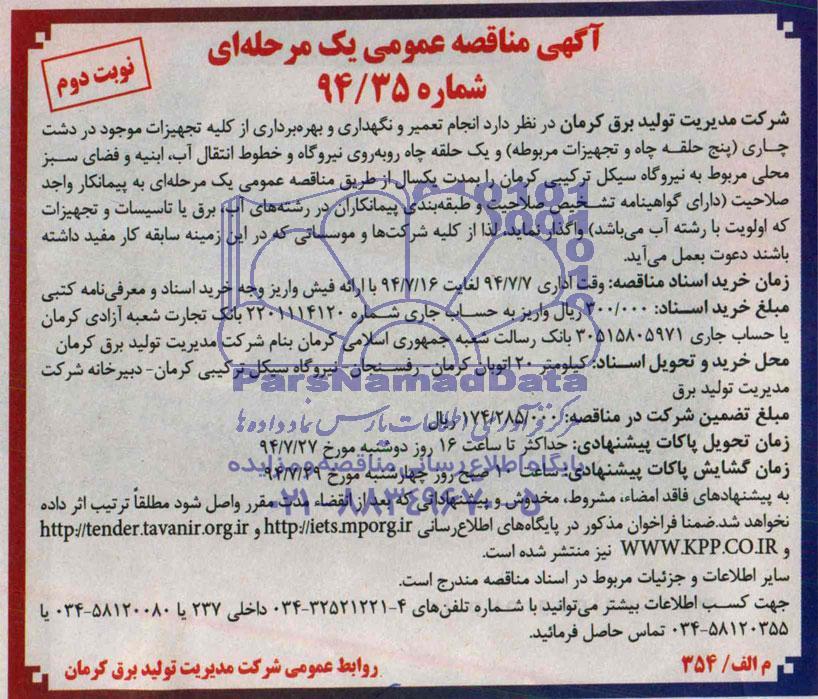 آگهی مناقصه عمومی یک مرحله‌ای
شماره ۹۴/۳۵
نوبت دوم
شرکت مدیریت تولید برق کرمان در نظر دارد انجام تعمیر و نگهداری و بهره‌برداری از کلیه تجهیزات موجود در دشت
چاری (پنج حلقه چاه و تجهیزات مربوطه) و یک حلقه چاه روبه‌روی نیروگاه و خطوط انتقال آب، ابنیه و فضای سبز
محلی مربوط به نیروگاه سیکل ترکیبی کرمان را بمدت یکسال از طریق مناقصه عمومی یک مرحله‌ای به پیمانکار واجد
صلاحیت (دارای گواهینامه تشخیص صلاحیت و طبقه‌بندی پیمانکاران در رشته‌های آب، برق یا تاسیسات و تجهیزات
که اولویت با رشته آب می‌باشد) واگذار نماید. لذا از کلیه شرکت‌ها و موسساتی که در این زمینه سابقه کار مفید داشته
باشند دعوت بعمل می‌آید.
زمان خرید اسناد مناقصه: وقت اداری ۹۴/۷/۷ لغایت ۹۴/۷/۱۶ با ارائه فیش واریز وجه خرید اسناد و معرفی‌نامه کتبی
مبلغ خرید اسناد: ۳۰۰/۰۰۰ ریال واریز به حساب جاری شماره ۲۲۰۱۱۱۴۱۲۰ بانک تجارت شعبه آزادی کرمان
یا حساب جاری ۳۰۵۱۵۸۰۵۹۷۱ بانک رسالت شعبه جمهوری اسلامی کرمان بنام شرکت مدیریت تولید برق کرمان
محل خرید و تحویل اسناد: کیلومتر ۲۰ اتوبان کرمان - رفسنجان- نیروگاه سیکل ترکیبی کرمان- دبیرخانه شرکت
مدیریت تولید برق
مبلغ تضمین شرکت در مناقصه: ۱۷۴/۲۸۵/۰۰۰ ریال
زمان تحویل پاکات پیشنهادی: حداکثر تا ساعت ۱۶ روز دوشنبه مورخ ۹۴/۷/۲۷
زمان گشایش پاکات پیشنهادی: ساعت ۱۰ صبح روز چهارشنبه مورخ ۹۴/۷/۲۹
به پیشنهادهای فاقد امضاء، مشروط، مخدوش و پیشنهاداتی که بعد از انقضاء مدت مقرر واصل شود مطلقاً ترتیب اثر داده
نخواهد شد.ضمنا فراخوان مذکور در پایگاه‌های اطلاع‌رسانی http://iets.mporg.ir و http://tender.tavanir.org.ir
و WWW.KPP.CO.IR نیز منتشر شده است.
سایر اطلاعات و جزئیات مربوط در اسناد مناقصه مندرج است.
جهت کسب اطلاعات بیشتر می‌توانید با شماره تلفن‌های ۴-۳۲۵۲۱۲۲۱-۰۳۴ داخلی ۲۳۷ یا ۵۸۱۲۰۰۸۰-۰۳۴ یا
۵۸۱۲۰۳۵۵-۰۳۴ تماس حاصل فرمائید.
م الف/ ۳۵۴
روابط عمومی شرکت مدیریت تولید برق کرمان
ParsNamadData
مرکز فرآوری اطلاعات پارس نماد داده‌ها
پایگاه اطلاع رسانی مناقصه و مزایده
۰۲۱-۸۸۳۴۹۶۷۰-۵